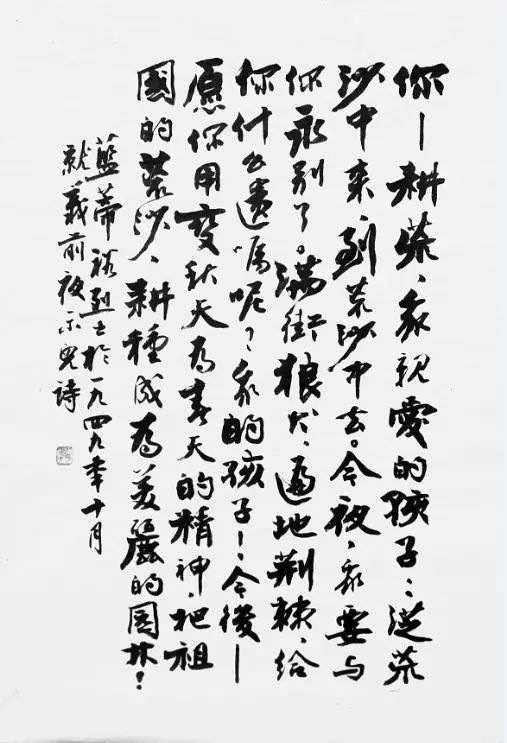 你—耕荒、我親愛的孩子：從荒
沙中來、到荒沙中去。今夜、我要与
你永别了。滿街狼犬、遍地荆棘、給
你什么遺嘱呢？我的孩子！今後—
愿你用變秋天为春天的精神、把祖
國的荒沙、耕種成为美麗的园林！
藍蒂裕烈士於一九四九年十月
就義前夜示兒詩